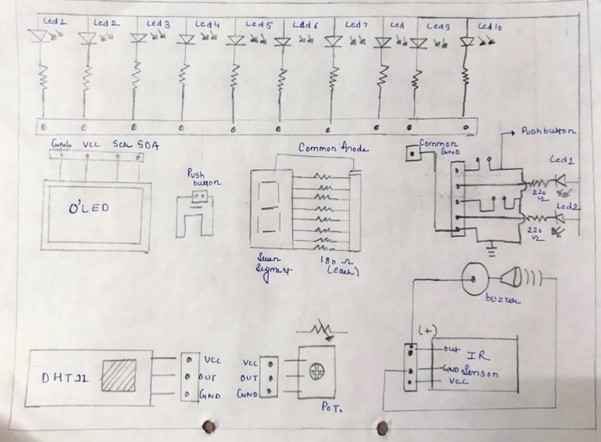 Led1 Led2 Led3 Led4 Led5 Led6 Led7 Led Led9 Led10
GND VCC SCL SDA
O'LED
Push
button
Common Anode
Seven
Segment
180 Ω
(each)
Common
GND
Pushbutton
Led1
220
Ω
Led2
220
Ω
buzzer
DHT22
VCC
OUT
GND
VCC
OUT
GND
POT.
(+)
OUT
IR
GND Sensor
VCC